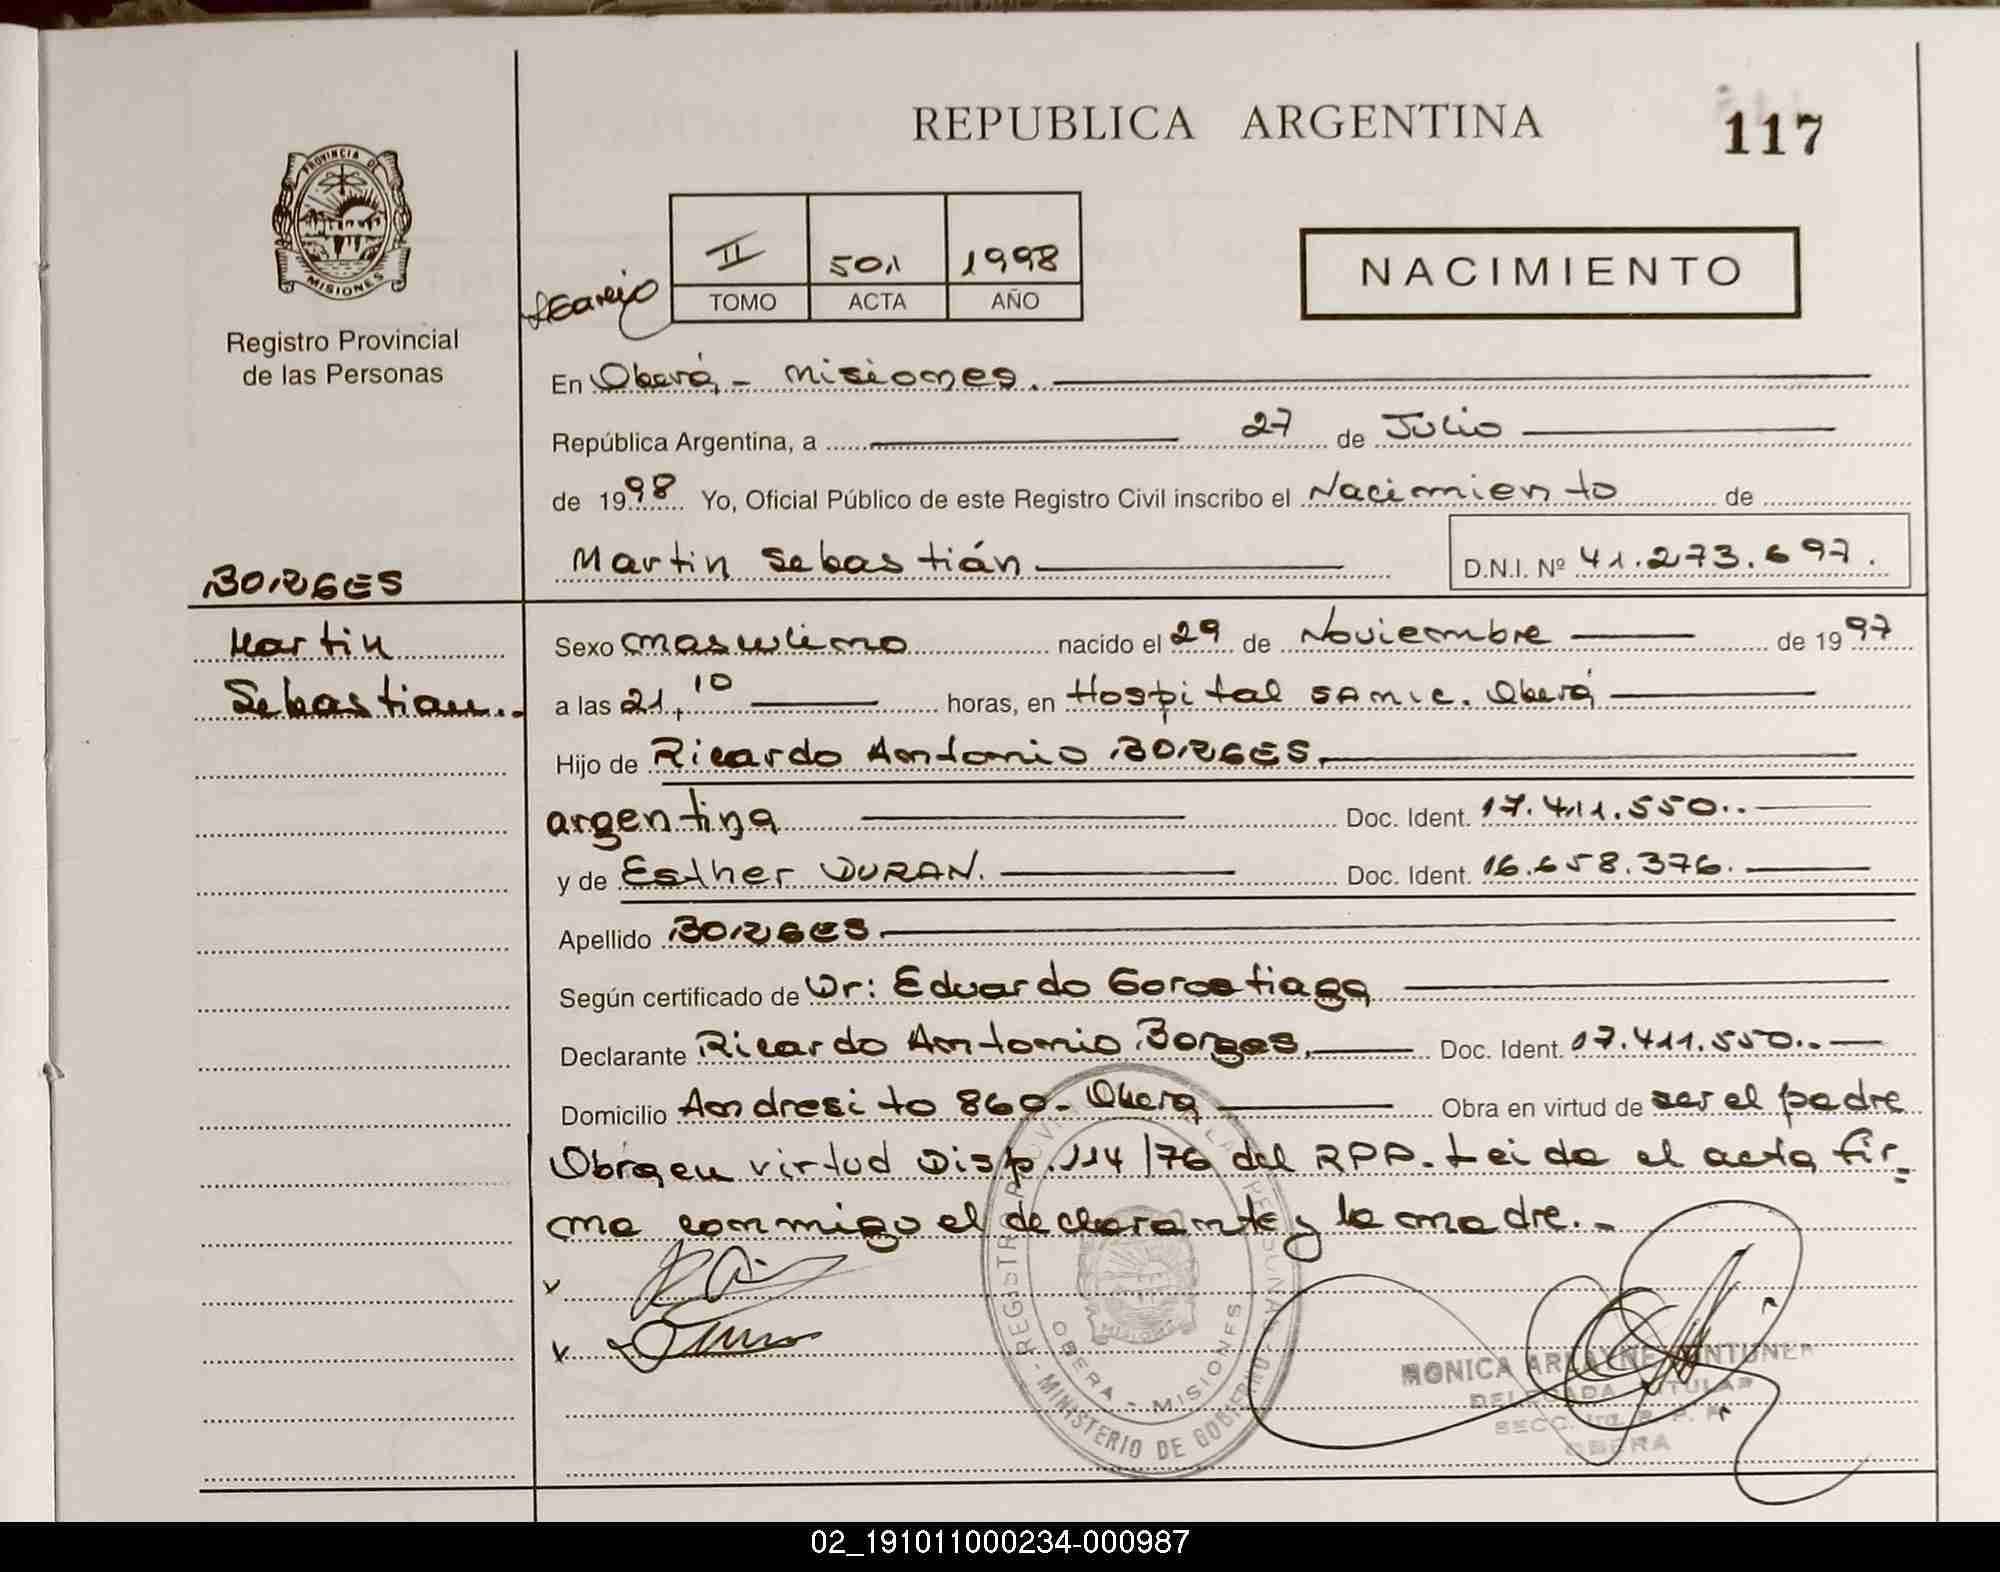 REPUBLICA ARGENTINA
117
PROVINCIA DE
MISIONES
Registro Provincial
de las Personas
II 501 1998
TOMO ACTA AÑO
NACIMIENTO
En Oberá - Misiones.
República Argentina, a 27 de Julio
de 1998 Yo, Oficial Público de este Registro Civil inscribo el Nacimiento de
Martin Sebastián D.N.I. Nº 41.273.697.
BORGES
Martin
Sebastian.
Sexo masculino nacido el 29 de Noviembre de 1997
a las 21,10 horas, en Hospital SAMIC. Oberá
Hijo de Ricardo Antonio BORGES,
argentina Doc. Ident. 17.411.550..
y de Esther DURAN. Doc. Ident. 16.658.376.
Apellido BORGES
Según certificado de Dr: Eduardo Gorostiaga
Declarante Ricardo Antonio Borges, Doc. Ident. 17.411.550..
Domicilio Andresito 860- Oberá Obra en virtud de ser el padre
Obra en virtud Disp. 114/76 del RPP. Leida el acta fir=
ma conmigo el declarante y la madre.-
OBERA - MISIONES
MINISTERIO DE GOBIERNO
MISIONES
MONICA
DELEGADA TITULAR
OBERA
02_191011000234-000987